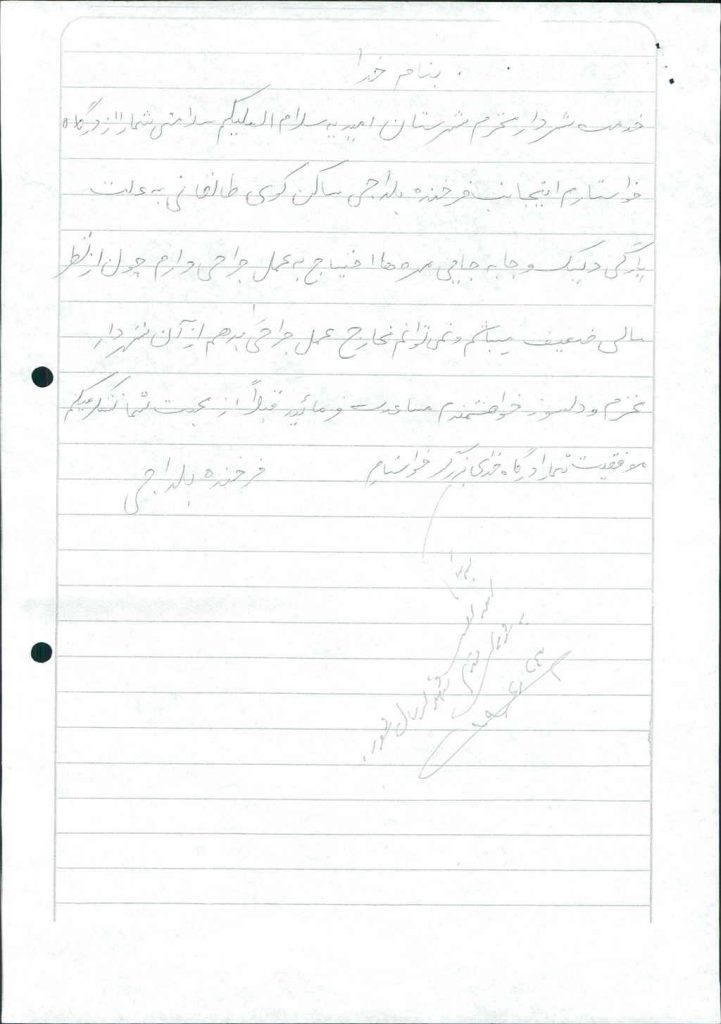 بنام خدا
خدمت شهردار محترم شهرستان امیدیه سلام العلیکم سلامتی شما را از درگاه
خواستارم اینجانب فرخنده بلداجی ساکن کوی طالقانی به علت
پارگی دیسک و جا به جایی مهره ها احتیاج به عمل جراحی دارم چون از نظر
مالی ضعیف میباشم و نمی توانم مخارج عمل جراحی بدهم از آن شهردار
محترم و دلسوز خواهشمندم مساعدت فرمائید قبلاً از محبت شما تشکر میکنم
موفقیت شما را از درگاه خدای بزرگ خواستارم
فرخنده بلداجی